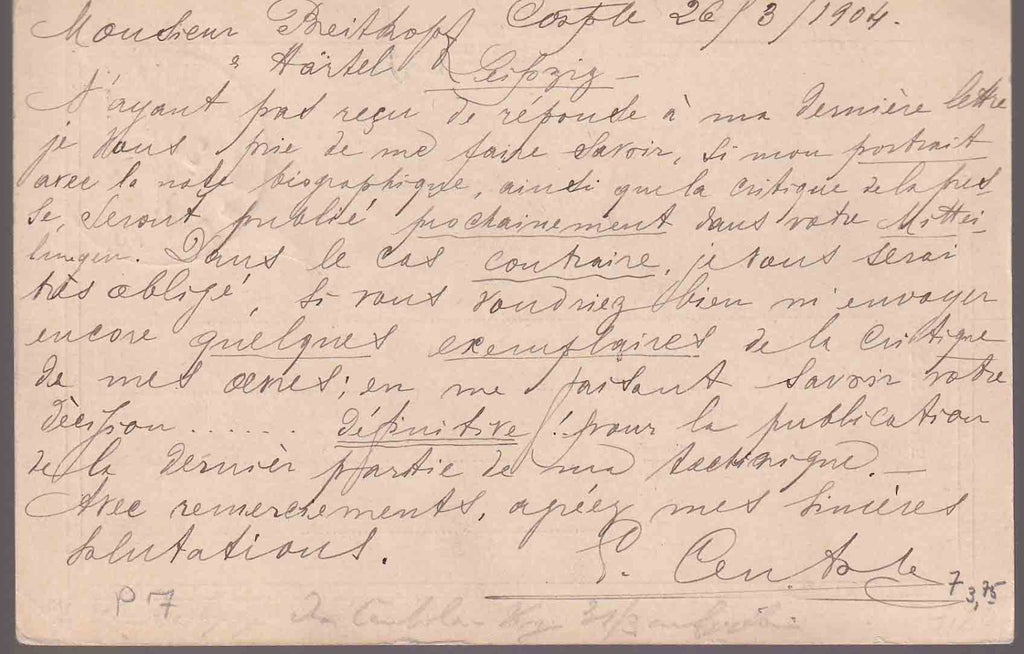 Monsieur Breitkopf Cosple 26/3/1904.
& Härtel Leipzig –
N'ayant pas reçu de réponse à ma dernière lettre
je vous prie de me faire savoir, si mon portrait
avec la note biographique, ainsi que la critique de la pres-
se, seront publié prochainement dans votre Mittei-
lungen. Dans le cas contraire, je vous serai
très obligé, si vous voudriez bien m'envoyer
encore quelques exemplaires de la critique
de mes œvres; en me faisant savoir votre
décision ...... définitive! pour la publication
de la dernièr partie de ma technique. –
Avec remerciements, agréez mes sincères
salutations.
P 7
7
3,75